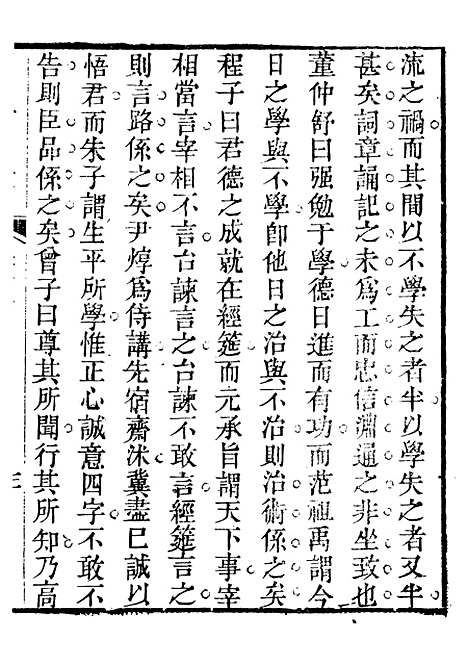 流之禍而其間以不學失之者半以學失之者又半
甚矣詞章誦記之未為工而忠信淵通之非坐致也
董仲舒曰强勉于學德日進而有功而范祖禹謂今
日之學與不學卽他日之治與不治則治術係之矣
程子曰君德之成就在經筵而元承旨謂天下事宰
相當言宰相不言台諫言之台諫不敢言經筵言之
則言路係之矣尹焞為侍講先宿齋沐冀盡已誠以
悟君而朱子謂生平所學惟正心誠意四字不敢不
告則臣品係之矣曾子曰尊其所聞行其所知乃高
三